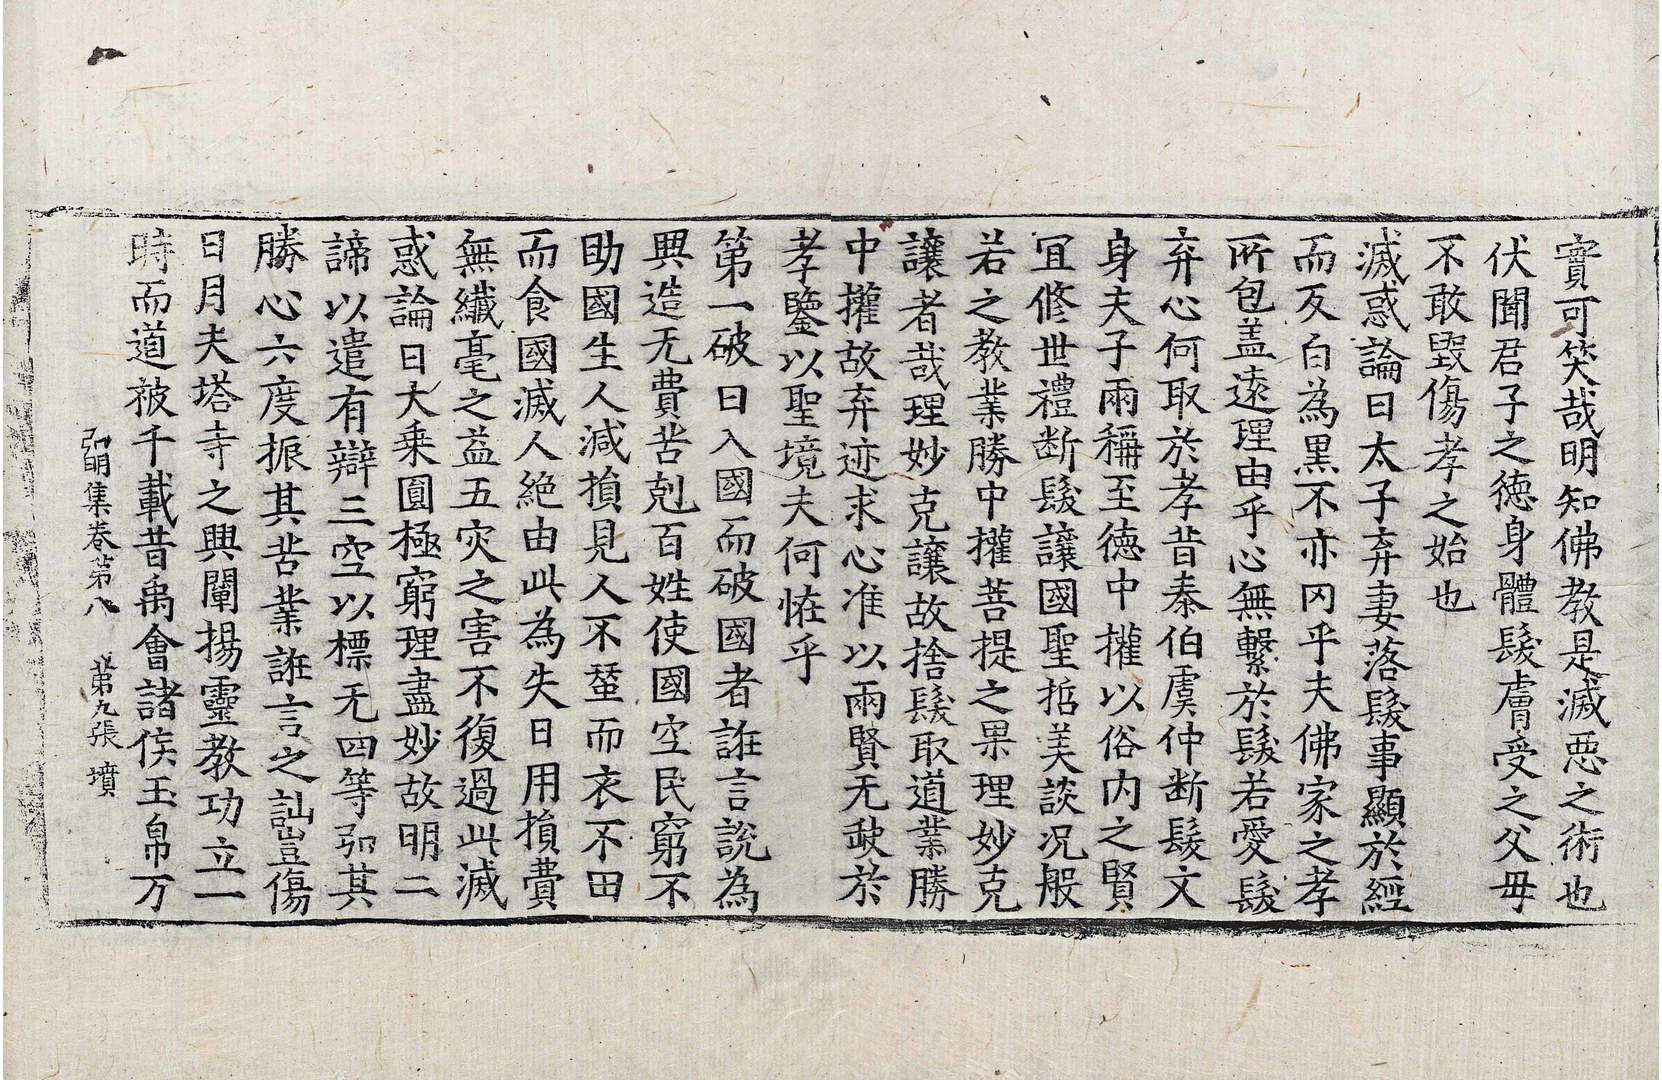 實可笑哉明知佛教是滅惡之術也
伏聞君子之德身體髮膚受之父母
不敢毀傷孝之始也
滅惑論曰太子弃妻落髮事顯於經
而反白為黑不亦冈乎夫佛家之孝
所包盖遠理由乎心無繫於髮若愛髮
弃心何取於孝昔泰伯虞仲断髮文
身夫子兩稱至德中權以俗内之賢
冝修世禮断髮讓國聖㧱美談况般
若之教業勝中權菩提之果理妙克
讓者哉理妙克讓故捨髮取道業勝
中權故弃迹求心准以兩賢无𡙇於
孝鑒以聖境夫何恠乎
第一破曰入國而破國者誑言說為
興造无費苦剋百姓使國空民窮不
助國生人減損見人不蚕而衣不田
而食國滅人絶由此為失日用損費
無纖毫之益五灾之害不復過此滅
惑論曰大乗圓極窮理盡妙故明二
諦以遣有辯三空以標无四等弘其
勝心六度振其苦業誑言之訕豈傷
日月夫塔寺之興闡揚靈教功立一
時而道被千載昔禹會諸侯玉帛万
弘明集卷第八 第九張 墳